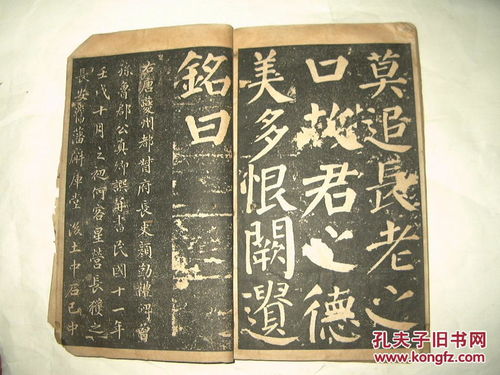 莫追長老之
口故君之德
美多恨闕遺
銘曰
右唐夔州都督府長史顏勤禮碑曾
孫魯郡公真卿撰并書民國十一年
壬戌十月之初何客星營長獲之
長安舊藩廨庫堂後土中石已中
孔夫子旧书网
www.kongfz.com